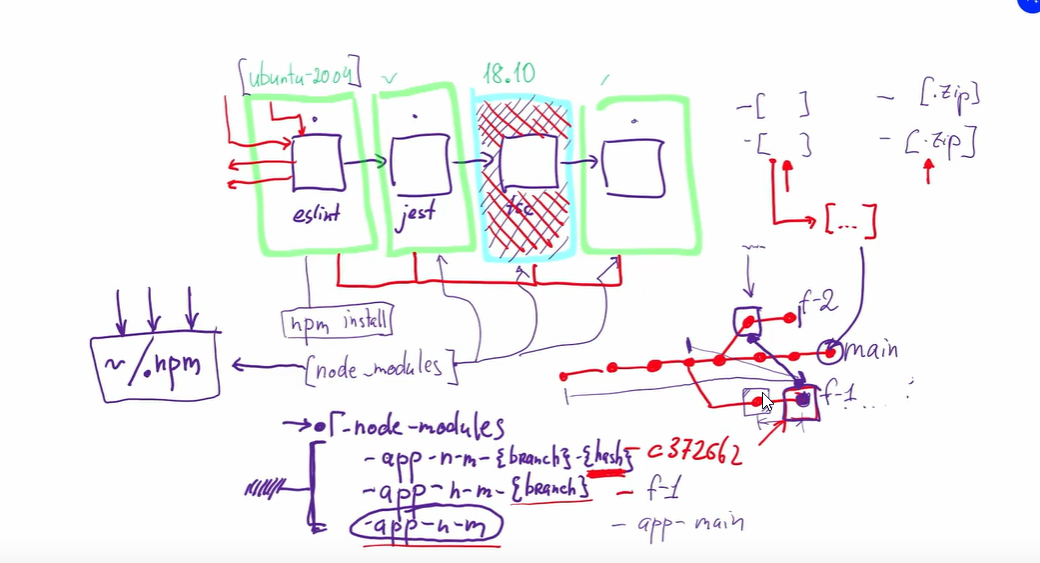 [ubuntu-2004]
18.10
-[ ]
- [.zip]
-[ ]
- [.zip]
eslint
jest
tsc
[...]
npm install
f-2
~/.npm
[node_modules]
main
f-1
Γ-node-modules
-app-n-m-{branch}-{hash} - c372662
-app-n-m-{branch} - f-1
-app-n-m - app-main